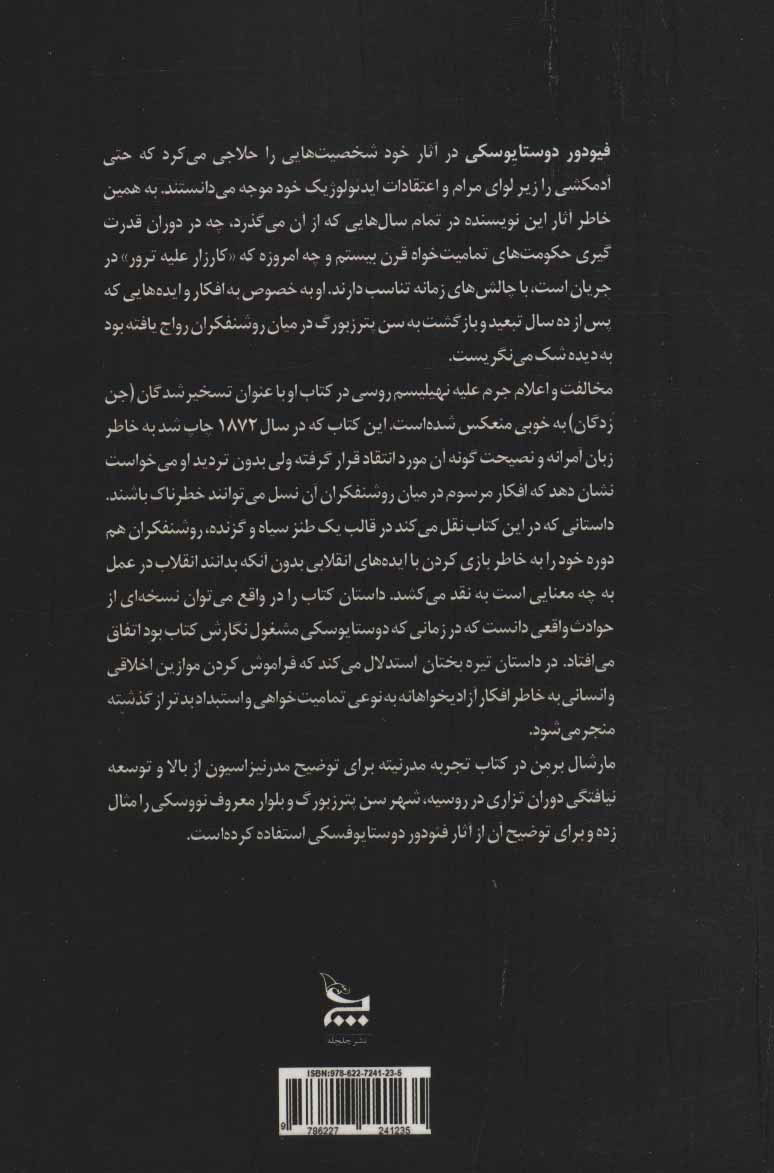 فیودور دوستایوسکی در آثار خود شخصیت‌هایی را حلاجی می‌کرد که حتی
آدمکشی را زیر لوای مرام و اعتقادات ایدئولوژیک خود موجه می‌دانستند. به همین
خاطر آثار این نویسنده در تمام سال‌هایی که از آن می‌گذرد، چه در دوران قدرت
گیری حکومت‌های تمامیت‌خواه قرن بیستم و چه امروزه که «کارزار علیه ترور» در
جریان است، با چالش‌های زمانه تناسب دارند. او به خصوص به افکار و ایده‌هایی که
پس از ده سال تبعید و بازگشت به سن پترزبورگ در میان روشنفکران رواج یافته بود
به دیده شک می‌نگریست.
مخالفت و اعلام جرم علیه نهیلیسم روسی در کتاب او با عنوان تسخیر شدگان (جن
زدگان) به خوبی منعکس شده‌است. این کتاب که در سال ۱۸۷۲ چاپ شد به خاطر
زبان آمرانه و نصیحت گونه آن مورد انتقاد قرار گرفته ولی بدون تردید او می‌خواست
نشان دهد که افکار مرسوم در میان روشنفکران آن نسل می‌توانند خطرناک باشند.
داستانی که در این کتاب نقل می‌کند در قالب یک طنز سیاه و گزنده، روشنفکران هم
دوره خود را به خاطر بازی کردن با ایده‌های انقلابی بدون آنکه بدانند انقلاب در عمل
به چه معنایی است به نقد می‌کشد. داستان کتاب را در واقع می‌توان نسخه‌ای از
حوادث واقعی دانست که در زمانی که دوستایوسکی مشغول نگارش کتاب بود اتفاق
می‌افتاد. در داستان تیره بختان استدلال می‌کند که فراموش کردن موازین اخلاقی
و انسانی به خاطر افکار آزادیخواهانه به نوعی تمامیت‌خواهی و استبداد بدتر از گذشته
منجر می‌شود.
مارشال برمن در کتاب تجربه مدرنیته برای توضیح مدرنیزاسیون از بالا و توسعه
نیافتگی دوران تزاری در روسیه، شهر سن پترزبورگ و بلوار معروف نووسکی را مثال
زده و برای توضیح آن از آثار فئودور دوستایوفسکی استفاده کرده‌است.
نشر جلجله
ISBN:978-622-7241-23-5
9 786227 241235